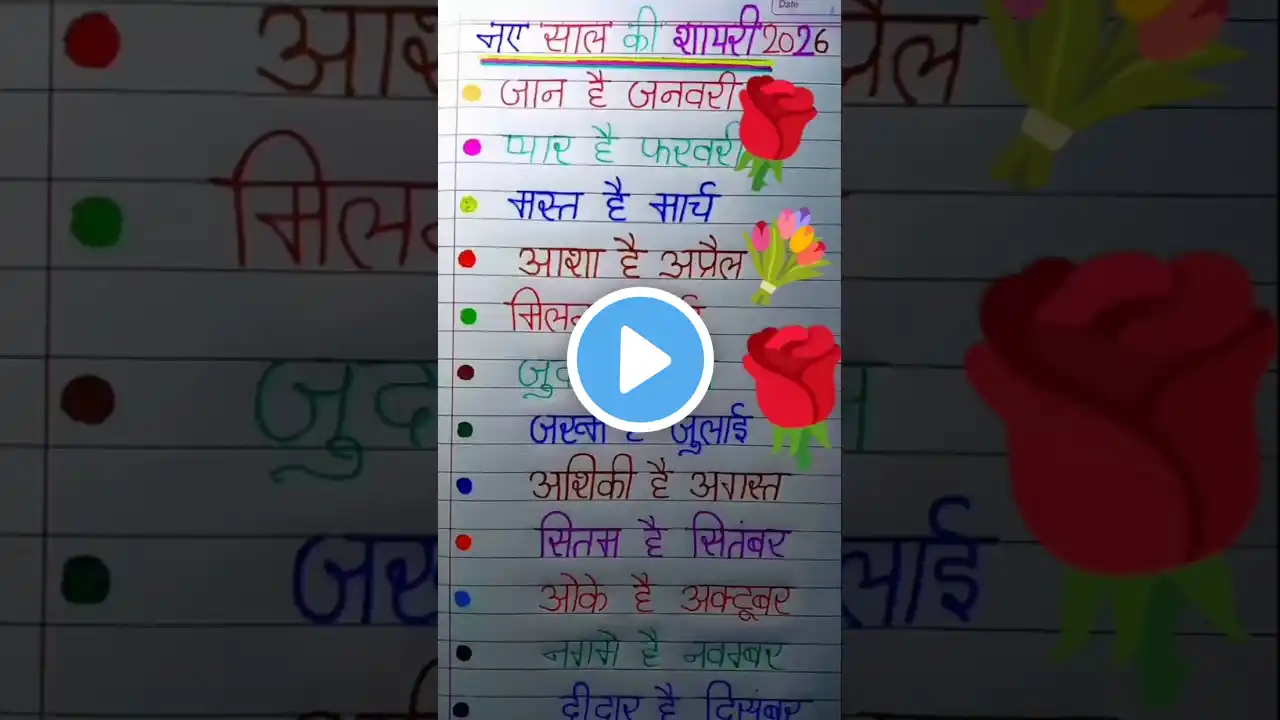 Date
नए साल की शायरी 2026
जान है जनवरी
प्यार है फरवरी
मस्त है मार्च
आशा है अप्रैल
जुलाई
अशिकी है अगस्त
सितम है सितंबर
ओके है अक्टूबर
नगमे है नवम्बर
दीदार है दिसंबर